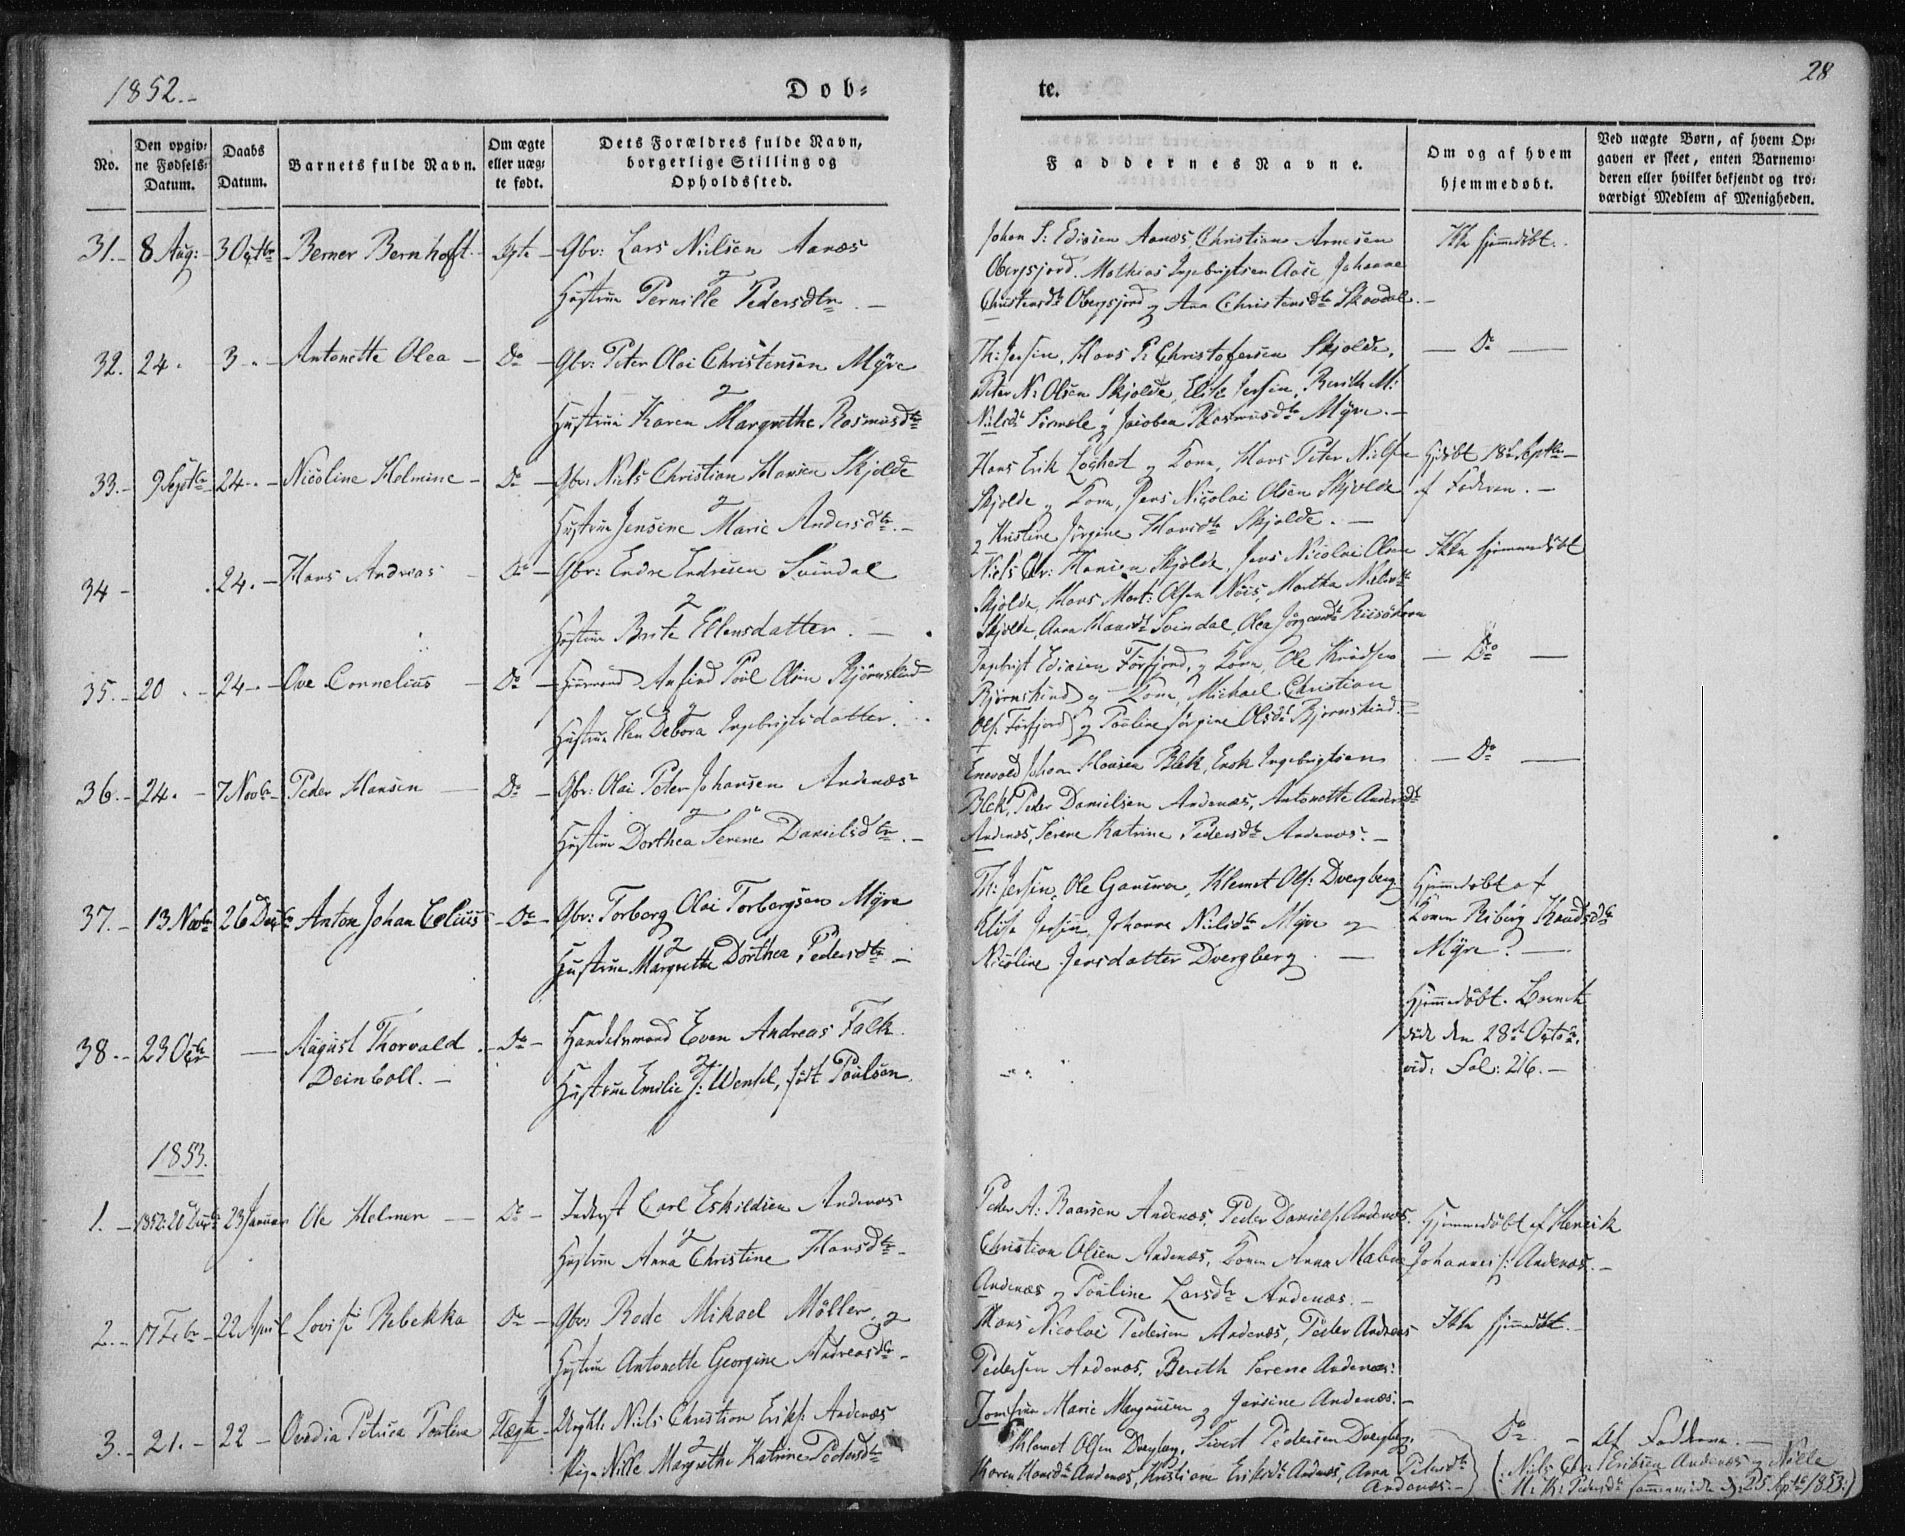 1852.-
Dob-
te.
28
No.
Den opgiv-
ne Fødsels-
Datum.
Daabs
Datum.
Barnets fulde Navn.
Om ægte
eller uæg-
te født.
Dets Forældres fulde Navn,
borgerlige Stilling og
Opholdssted.
Faddernes Navne.
Om og af hvem
hjemmedøbt.
Ved uægte Børn, af hvem Op-
gaven er skeet, enten Barnemo-
deren eller hvilket bekjendt og tro-
værdigt Medlem af Menigheden.
31.- 8 Aug: 3 Octbr Berner Bernhoft. Ægte Gbr: Lars Nielsen Aanæs
Hustrue Pernille Pedersdtr. -
Johan S: Edisen Aanæs, Christian Arnesen
Obergsjord, Mathias Ingebrigtsen Aase, Johanne
Christensdtr Obergsjord og Ana Christensdtr Skovdal. -
Ikke hjemmedöbt.
32. 24. 3 Antonette Olea - Do - Gbr: Peter Olai Christensen Myre
Hustrue Karen Margrethe Rasmusdtr
Th: Jersin, Hans P: Christofersen Skjolde,
Peter N: Olsen Skjolde, Elise Jersin, Berith M:
Nielsdtr og Jacobea Rasmusdtr Myre. -
- Do -
33.- 9 Septbr 24 Nicoline Helmine - Do - Gbr: Niels Christian Hansen Skjolde
Hustrue Jensine Marie Andersdtr. -
Hans Erik Lochert og Kone, Hans Peter Nielsen
Skjolde og Kone, Jens Nicolai Olsen Skjolde
og Kristine Jörgine Hansdtr Skjolde. -
Hjdöbt 18de Septbr
af Faderen. -
34 - 24. - Hans Andreas Do - Gbr: Endre Endresen Svindal
Hustrue Brite Ellensdatter. -
Niels Chr: Hansen Skjolde, Jens Nicolai Olsen
Skjolde, Hans Mart: Olsen Nöis, Martha Nielsdtr
Skjolde, Anna Svindal, Olea Jörgensdtr
Ikke hjemmedöbt
35.- 20 24 - Ove Cornelius Do - Huusmand Poul Olsen Bjørnskind
Hustrue Elen Debora Ingebrigtsdatter.
Ingebrigt Forfjord, og Kone, Ole Knudsen
Bjørnskind og Kone, Michael Christian
Ols: Forfjord og Pauline Jørgine Olsdtr Bjørnskind.
- Do -
36.- 24. - 7 Novbr Peder Hansen Do - Gbr: Olai Peter Johansen Andenæs
Hustrue Dorthea Serene Danielsdtr. -
Enevold Johan Hansen Blek, Ingebrigtsen
Blek, Peder Danielsen Andenæs, Antonette Andersdtr
Andenæs, Serene Katrine Pedersdtr Andenæs. -
- Do -
37. - 13 Novbr 26 Decbr Anton Johan Celius - Do - Gbr: Torberg Olai Torbergsen Myre
Hustrue Margrethe Dorthea Pedersdtr -
Th: Jersin, Ole Hansen, Klemet Ols: Dverberg
Elise Jersin, Johanne Nielsdtr Myre og
Nicoline Jensdatter Dverberg. -
Hjemmedöbt af
Konen Riborg Knudsdtr
Myre? -
38 - 23 Octbr - August Thorvald - Do - Handelsmand Even Andreas Falk
Deinboll. -
Hustrue Emilie J: Wensel, födt Poulson.
Hjemmedöbt. Barnet
döde den 28de Octbr.
vid: Fol: 216. -
1853.
1. - 1852: 20 Decbr 23 Januar Ole Helmer - Do - Inderst Carl Eskildsen Andenæs
Hustrue Anna Christine Hansdtr -
Peder A: Andenæs, Peder Daniels: Andenæs.
Christian Olsen Andenæs, Konen Anna Malene
Andenæs og Pauline Larsdtr Andenæs. -
Hjemmedöbt af Henrik
Johannes: Andenæs. -
2. - 17 Febr - 22 April Lovise Rebekka Do - Gbr: Rode Mikael Möller, og
Hustrue Antonette Georgine Andreasdtr -
Hans Nicolai Pedersen Andenæs, Peder Andreas
Pedersen Andenæs, Bereth Serene Andenæs:
Jomfrue Marie og Jensine Andenæs. -
Ikke hjemmedöbt. -
3. - 21. - 22 - Ovedia Petrica Uægte Ungkl: Niels Christian Eriks: Andenæs
Pige Nille Margrethe Katrine Pedersdtr
Klemet Olsen Dverberg, Sivert Pedersen Dverberg,
Karen Hansdtr Andenæs, Kristiane Eriksdtr Andenæs, Anna Petersdtr
Andenæs. -
Do - Af Fadderne. -
(: Niels Chr: Eriksen Andenæs og Nille
M: K: Pedersdtr sammenviede d: 25 Septbr 1853:)